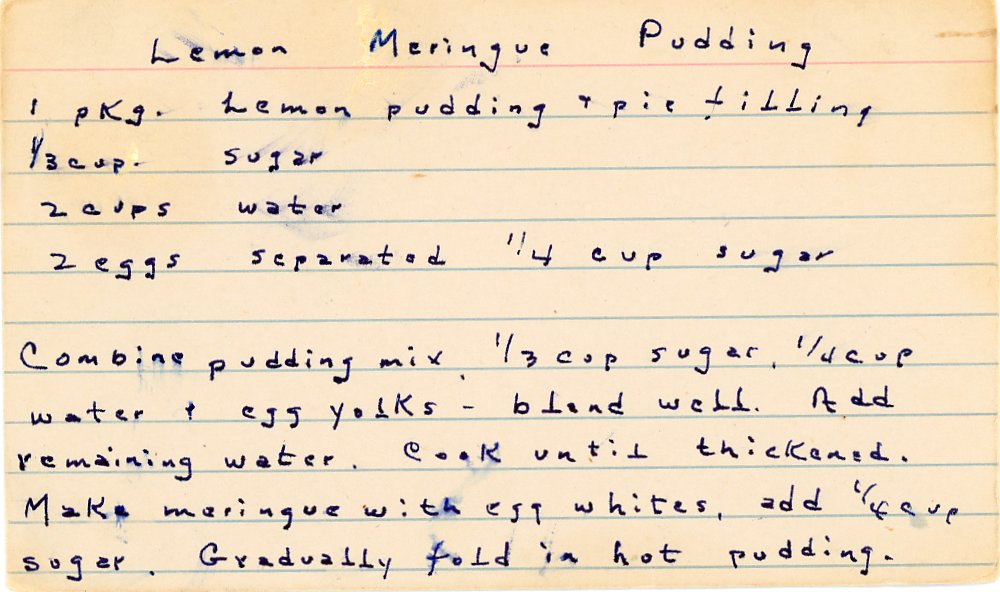 Lemon Meringue Pudding
1 pkg. Lemon pudding + pie filling
1/3 cup. sugar
2 cups water
2 eggs separated 1/4 cup sugar
Combine pudding mix, 1/3 cup sugar, 1/4 cup
water + egg yolks - blend well. Add
remaining water. Cook until thickened.
Make meringue with egg whites, add 1/4 cup
sugar. Gradually fold in hot pudding.